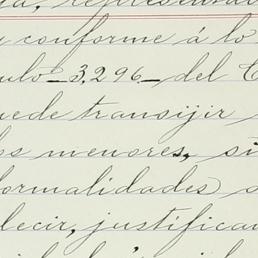 representa
conforme á lo
ulo 3,296 del C
uede transijir
os menores, si
formalidades s
decir, justifican